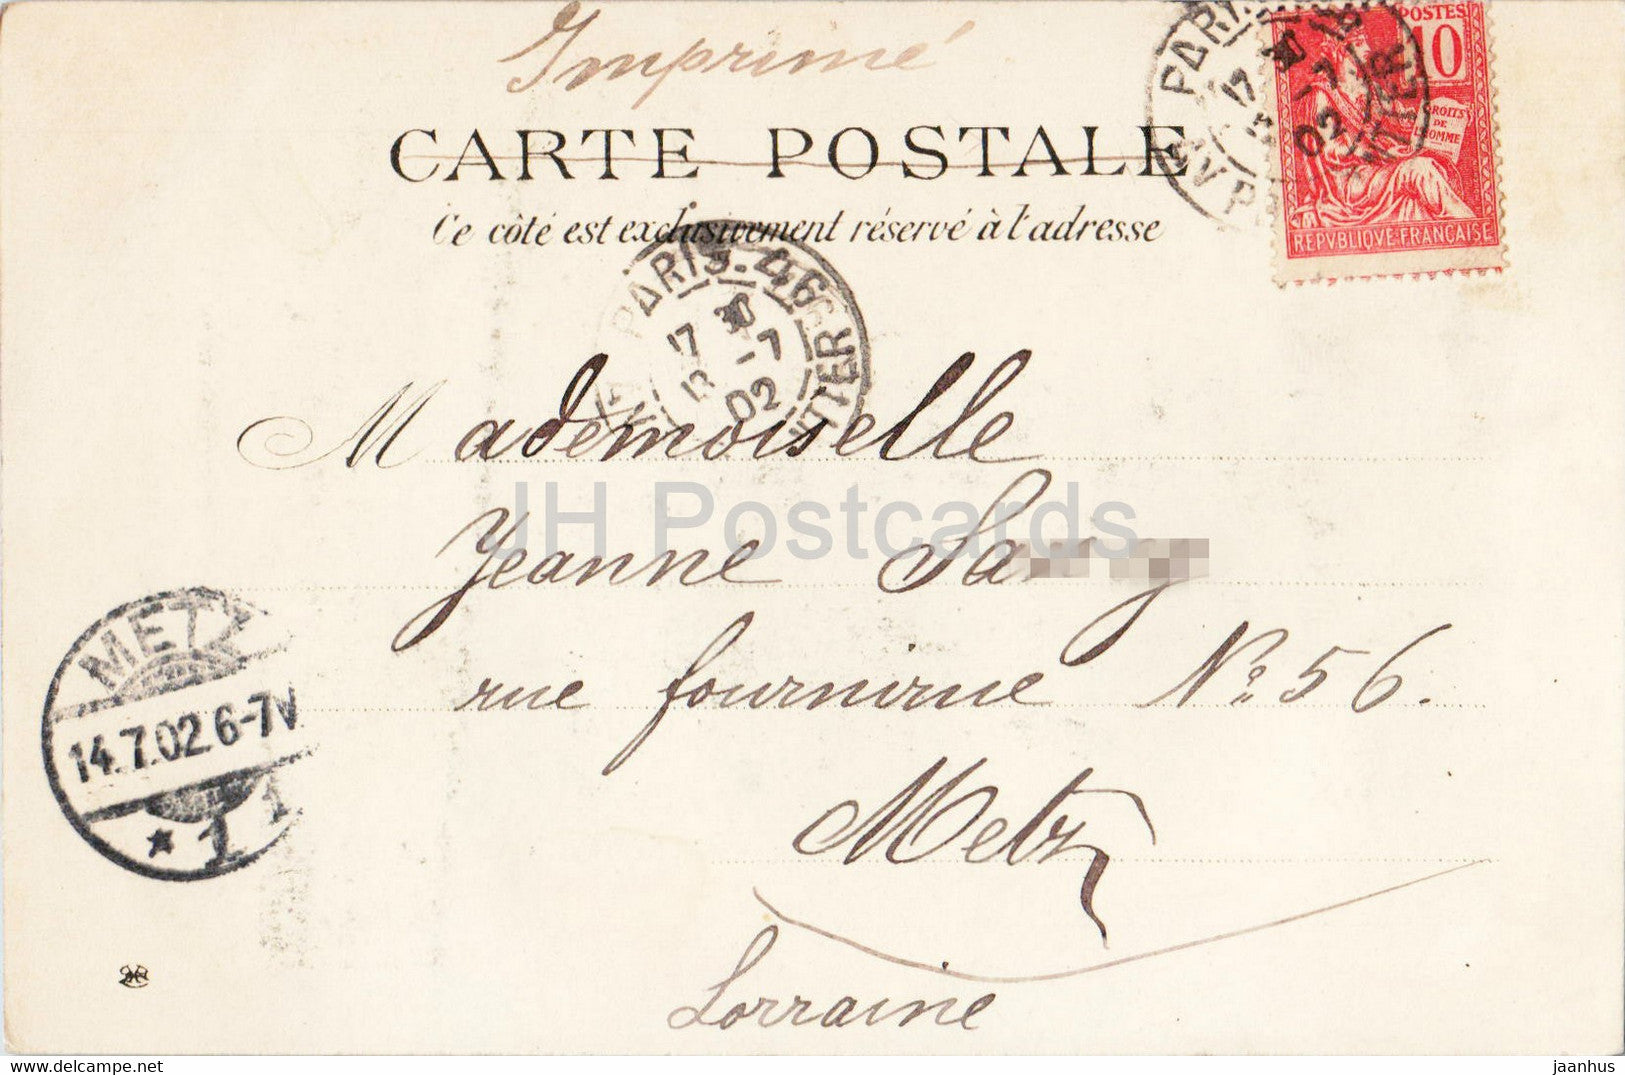 Imprimé
CARTE POSTALE
Ce côté est exclusivement réservé à l'adresse
POSTES
10
DROITS
DE
L'HOMME
REPVBLIQVE FRANÇAISE
PARIS
17 30
13 -7
02
PARIS. 46
17 30
13 -7
02
Mademoiselle
JH Postcards
Jeanne
rue fournirue No. 56.
Metz
Lorraine
METZ
14.7.02. 6-7V
* 1
jaanhus ©delcampe.net